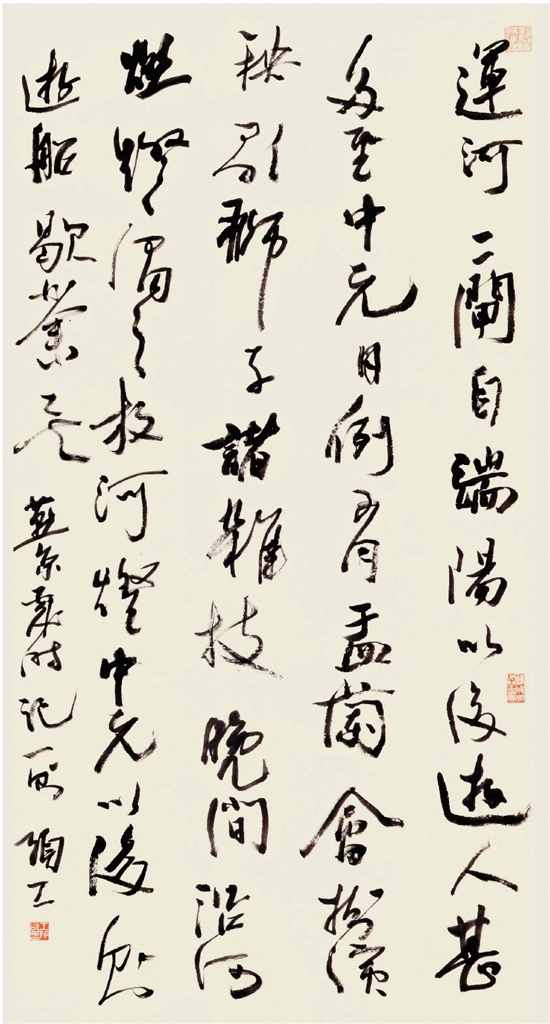 運河二閘自端陽以後遊人甚
多至中元日例有盂蘭會扮演
秧歌獅子諸雜技晚間沿河
燃燈謂之放河燈中元以後則
遊船歇業矣 燕京歲時記一則